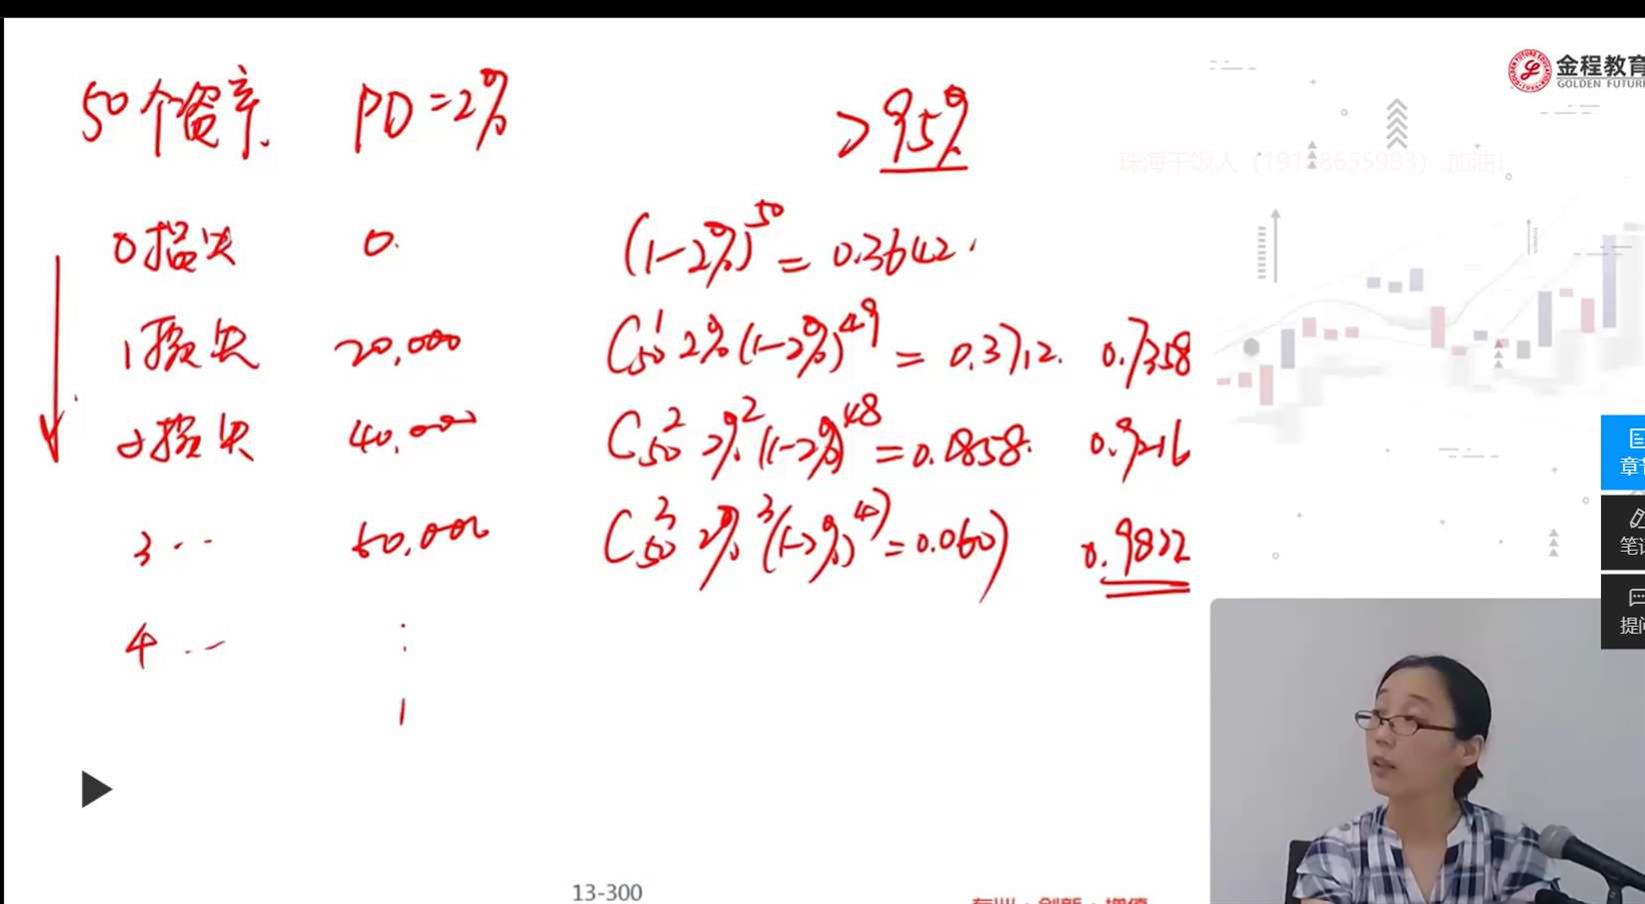 金程教育
GOLDEN FUTURE
50个资产. PD=2% >95%
0损失 0. (1-2%)^50 = 0.3642.
1损失 20,000 C₅₀¹ 2% (1-2%)^49 = 0.3712. 0.7358
2损失 40,000 C₅₀² 2%² (1-2%)^48 = 0.1858. 0.9216
3 ·· 60,000 C₅₀³ 2%³ (1-2%)^47 = 0.0607 0.9822
4 ··
章节
笔记
提问
13-300
专业·创新·增值